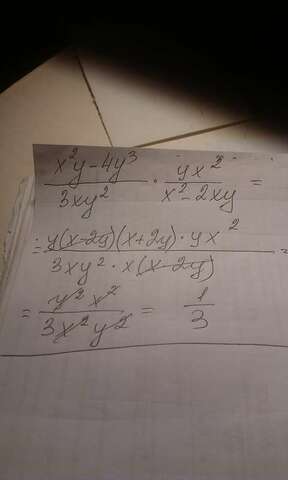 x²y-4y³/3xy² · yx²/x²-2xy =
= y(x-2y)(x+2y)·yx²/3xy²·x(x-2y) =
= y²x²/3x²y² = 1/3